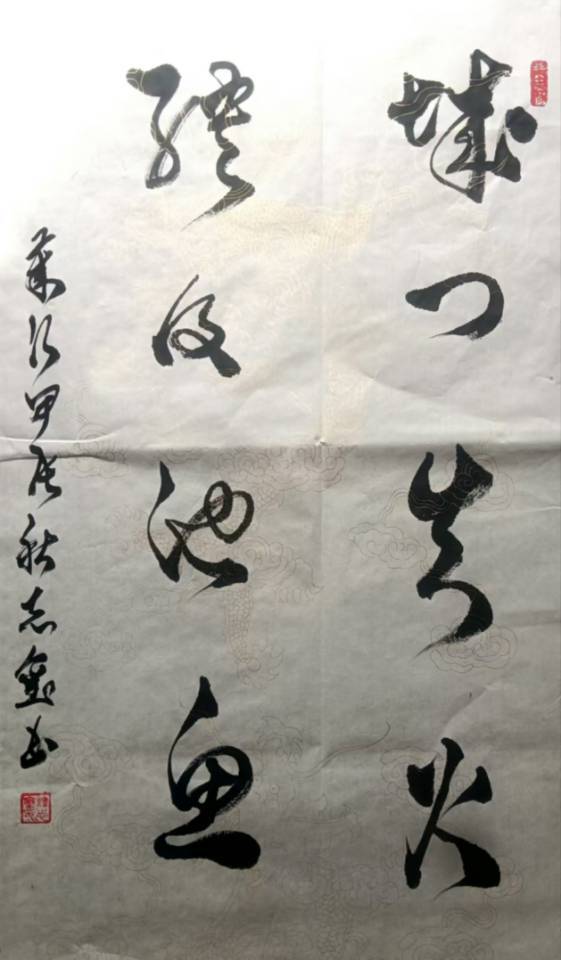 城门失火
殃及池鱼
岁次甲辰秋志鑫书